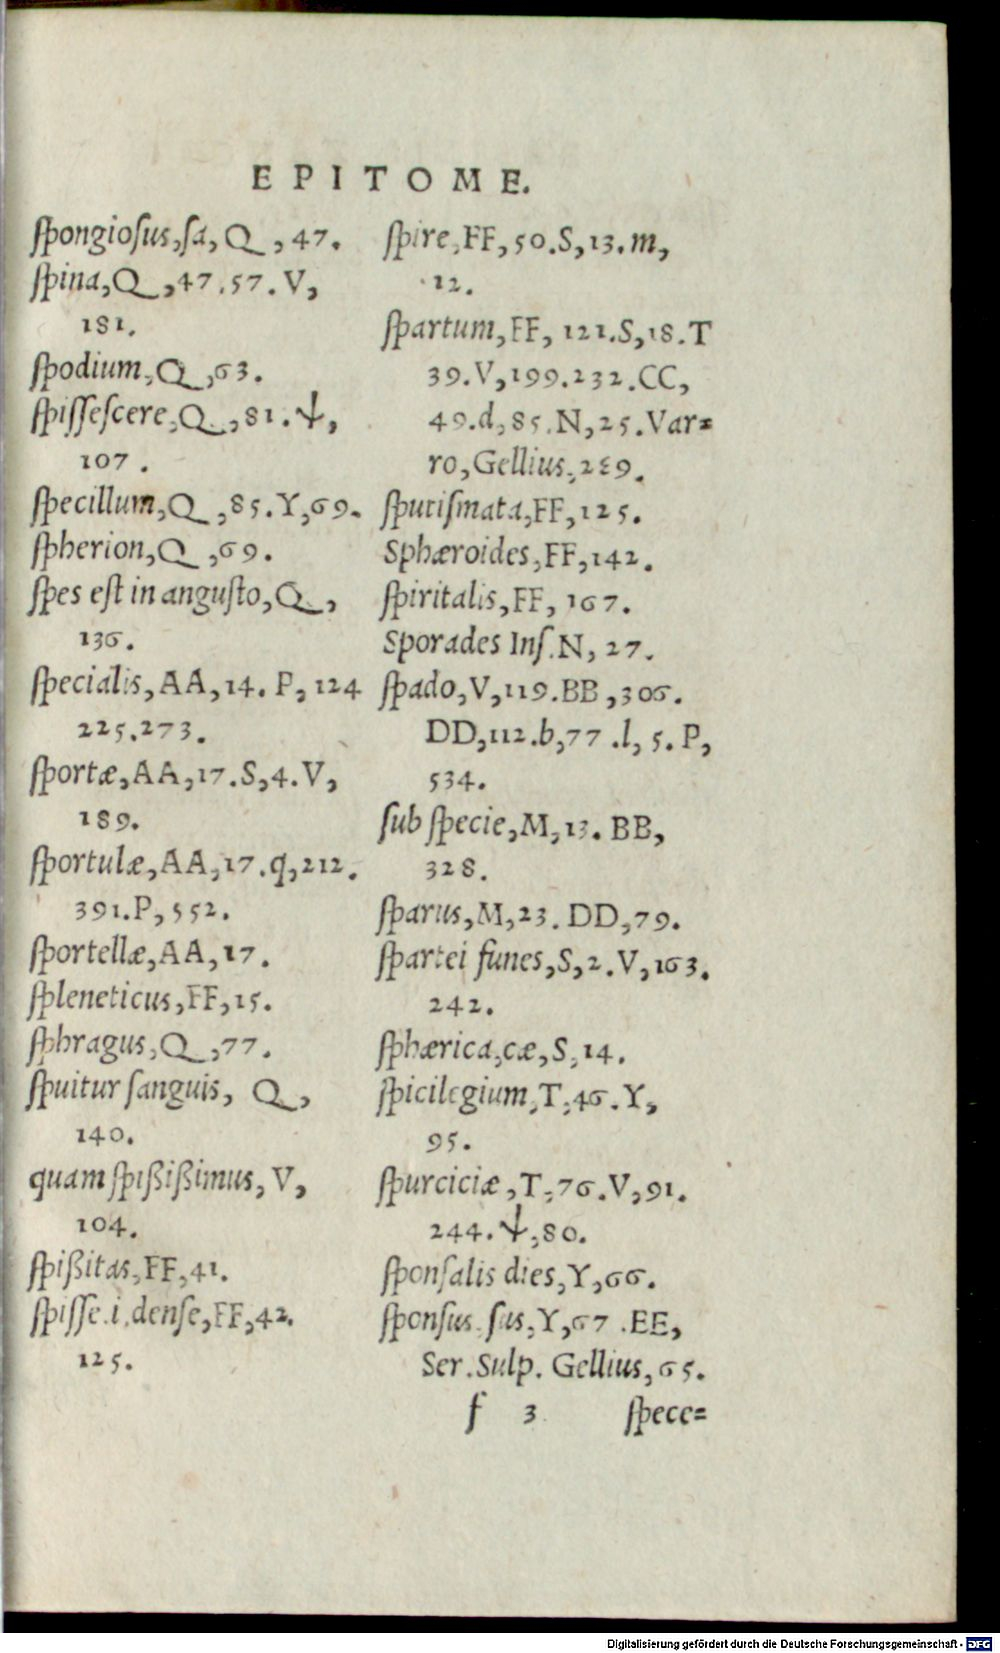 EPITOME.
ſpongioſus,ſa, Q, 47.
ſpina, Q, 47. 57. V,
181.
ſpodium, Q, 63.
ſpiſſeſcere, Q, 81. Ѱ,
107.
ſpecillum, Q, 85. Y, 69.
ſpherion, Q, 69.
ſpes eſt in anguſto, Q,
136.
ſpecialis, AA, 14. P, 124
225. 273.
ſportæ, AA, 17. S, 4. V,
189.
ſportulæ, AA, 17. q, 212.
391. P, 552.
ſportellæ, AA, 17.
ſpleneticus, FF, 15.
ſphragus, Q, 77.
ſpuitur ſanguis, Q,
140.
quam ſpißißimus, V,
104.
ſpißitas, FF, 41.
ſpiſſe.i.denſe, FF, 42.
125.
ſpire, FF, 50. S, 13. m,
12.
ſpartum, FF, 121. S, 18. T
39. V, 199. 232. CC,
49. d, 85. N, 25. Var=
ro, Gellius,
ſputiſmata, FF, 125.
Sphæroides, FF, 142.
ſpiritalis, FF, 167.
Sporades Inſ. N, 27.
ſpado, V, 119. BB, 306.
DD, 112. b, 77. l, 5. P,
534.
ſub ſpecie, M, 13. BB,
328.
ſparus, M, 23. DD, 79.
ſpartei funes, S, 2. V, 163.
242.
ſphærica,cæ, S, 14.
ſpicilegium, T, 46. Y,
95.
ſpurciciæ, T, 76. V, 91.
244. Ѱ, 80.
ſponſalis dies, Y, 66.
ſponſus, ſus, Y, 67. EE,
Ser. Sulp. Gellius, 65.
f 3 ſpece=
Digitalisierung gefördert durch die Deutsche Forschungsgemeinschaft - DFG